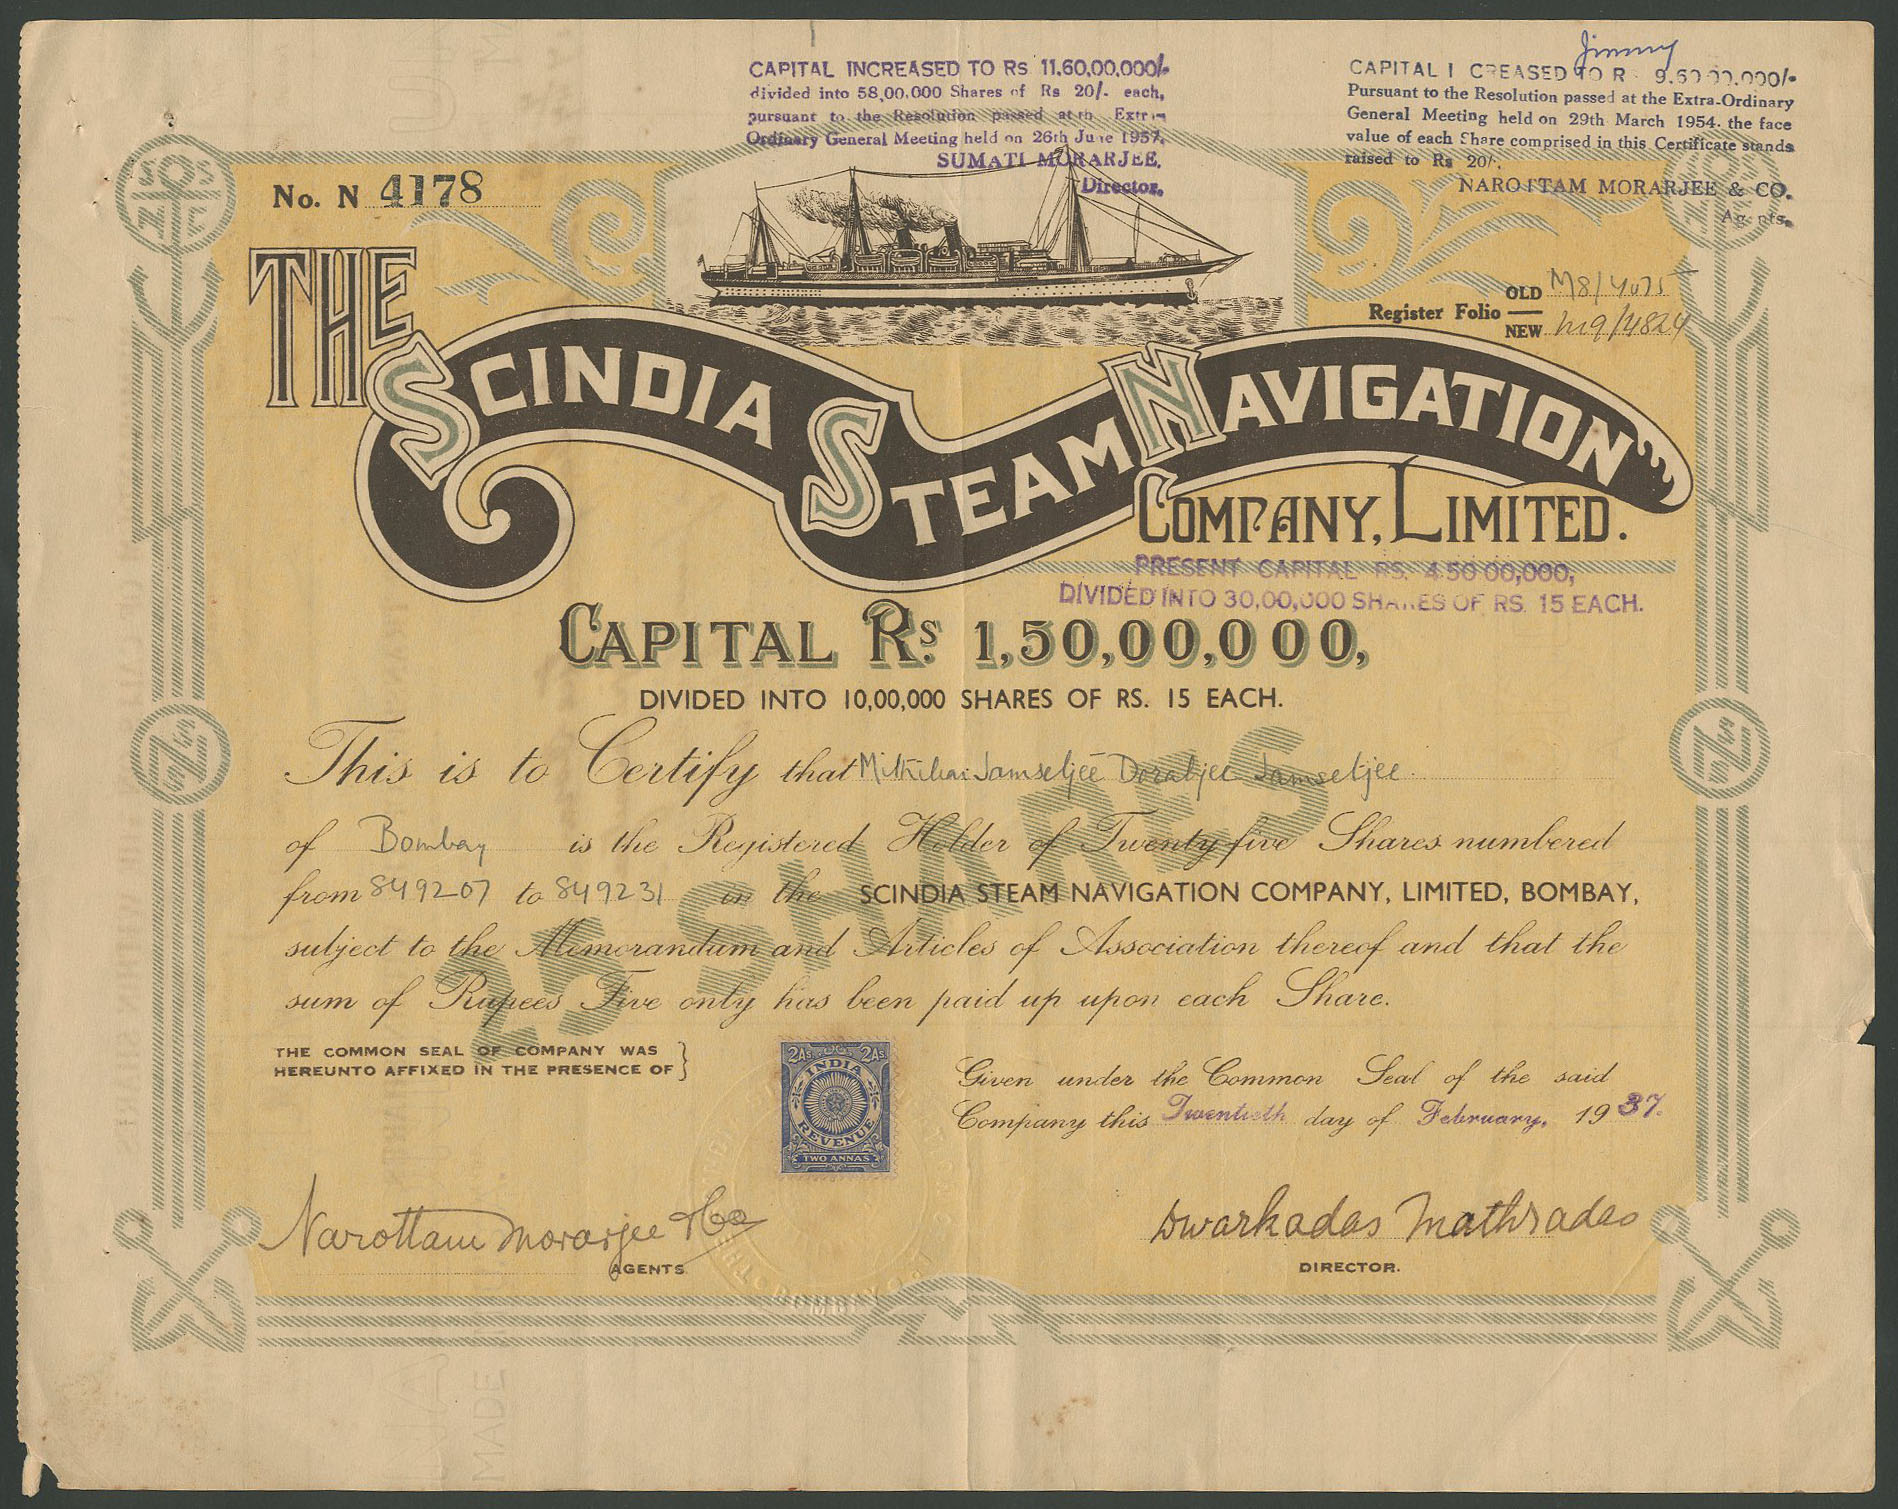 CAPITAL INCREASED TO RS 11,60,00,000/-
divided into 58,00,000 Shares of Rs 20/- each,
pursuant to the Resolution passed at th Extr
Ordinary General Meeting held on 26th June 1957.
SUMATI MORARJEE.
Director.
Jimmy
CAPITAL I CREASED TO R 9,60,00,000/-
Pursuant to the Resolution passed at the Extra-Ordinary
General Meeting held on 29th March 1954. the face
value of each Share comprised in this Certificate stands
raised to Rs 20/-
NAROTTAM MORARJEE & CO.
Agents.
No. N 4178
Register Folio
OLD M8/4075
NEW M9/4824
THE SCINDIA STEAM NAVIGATION
COMPANY, LIMITED.
PRESENT CAPITAL RS. 4,50,00,000,
DIVIDED INTO 30,00,000 SHARES OF RS. 15 EACH.
CAPITAL Rs. 1,50,00,000,
DIVIDED INTO 10,00,000 SHARES OF RS. 15 EACH.
This is to Certify that Jamsetjee Dorabjee Jamsetjee
of Bombay is the Registered Holder of Twenty five Shares numbered
from 849207 to 849231 in the SCINDIA STEAM NAVIGATION COMPANY, LIMITED, BOMBAY,
subject to the Memorandum and Articles of Association thereof and that the
sum of Rupees Five only has been paid up upon each Share.
25 SHARES
THE COMMON SEAL OF COMPANY WAS
HEREUNTO AFFIXED IN THE PRESENCE OF
2As. 2As.
INDIA
REVENUE
TWO ANNAS
Given under the Common Seal of the said
Company this Twentieth day of February, 1937.
Narottam Morarjee & Co
AGENTS
Dwarkadas Mathradas
DIRECTOR.
BOMBAY